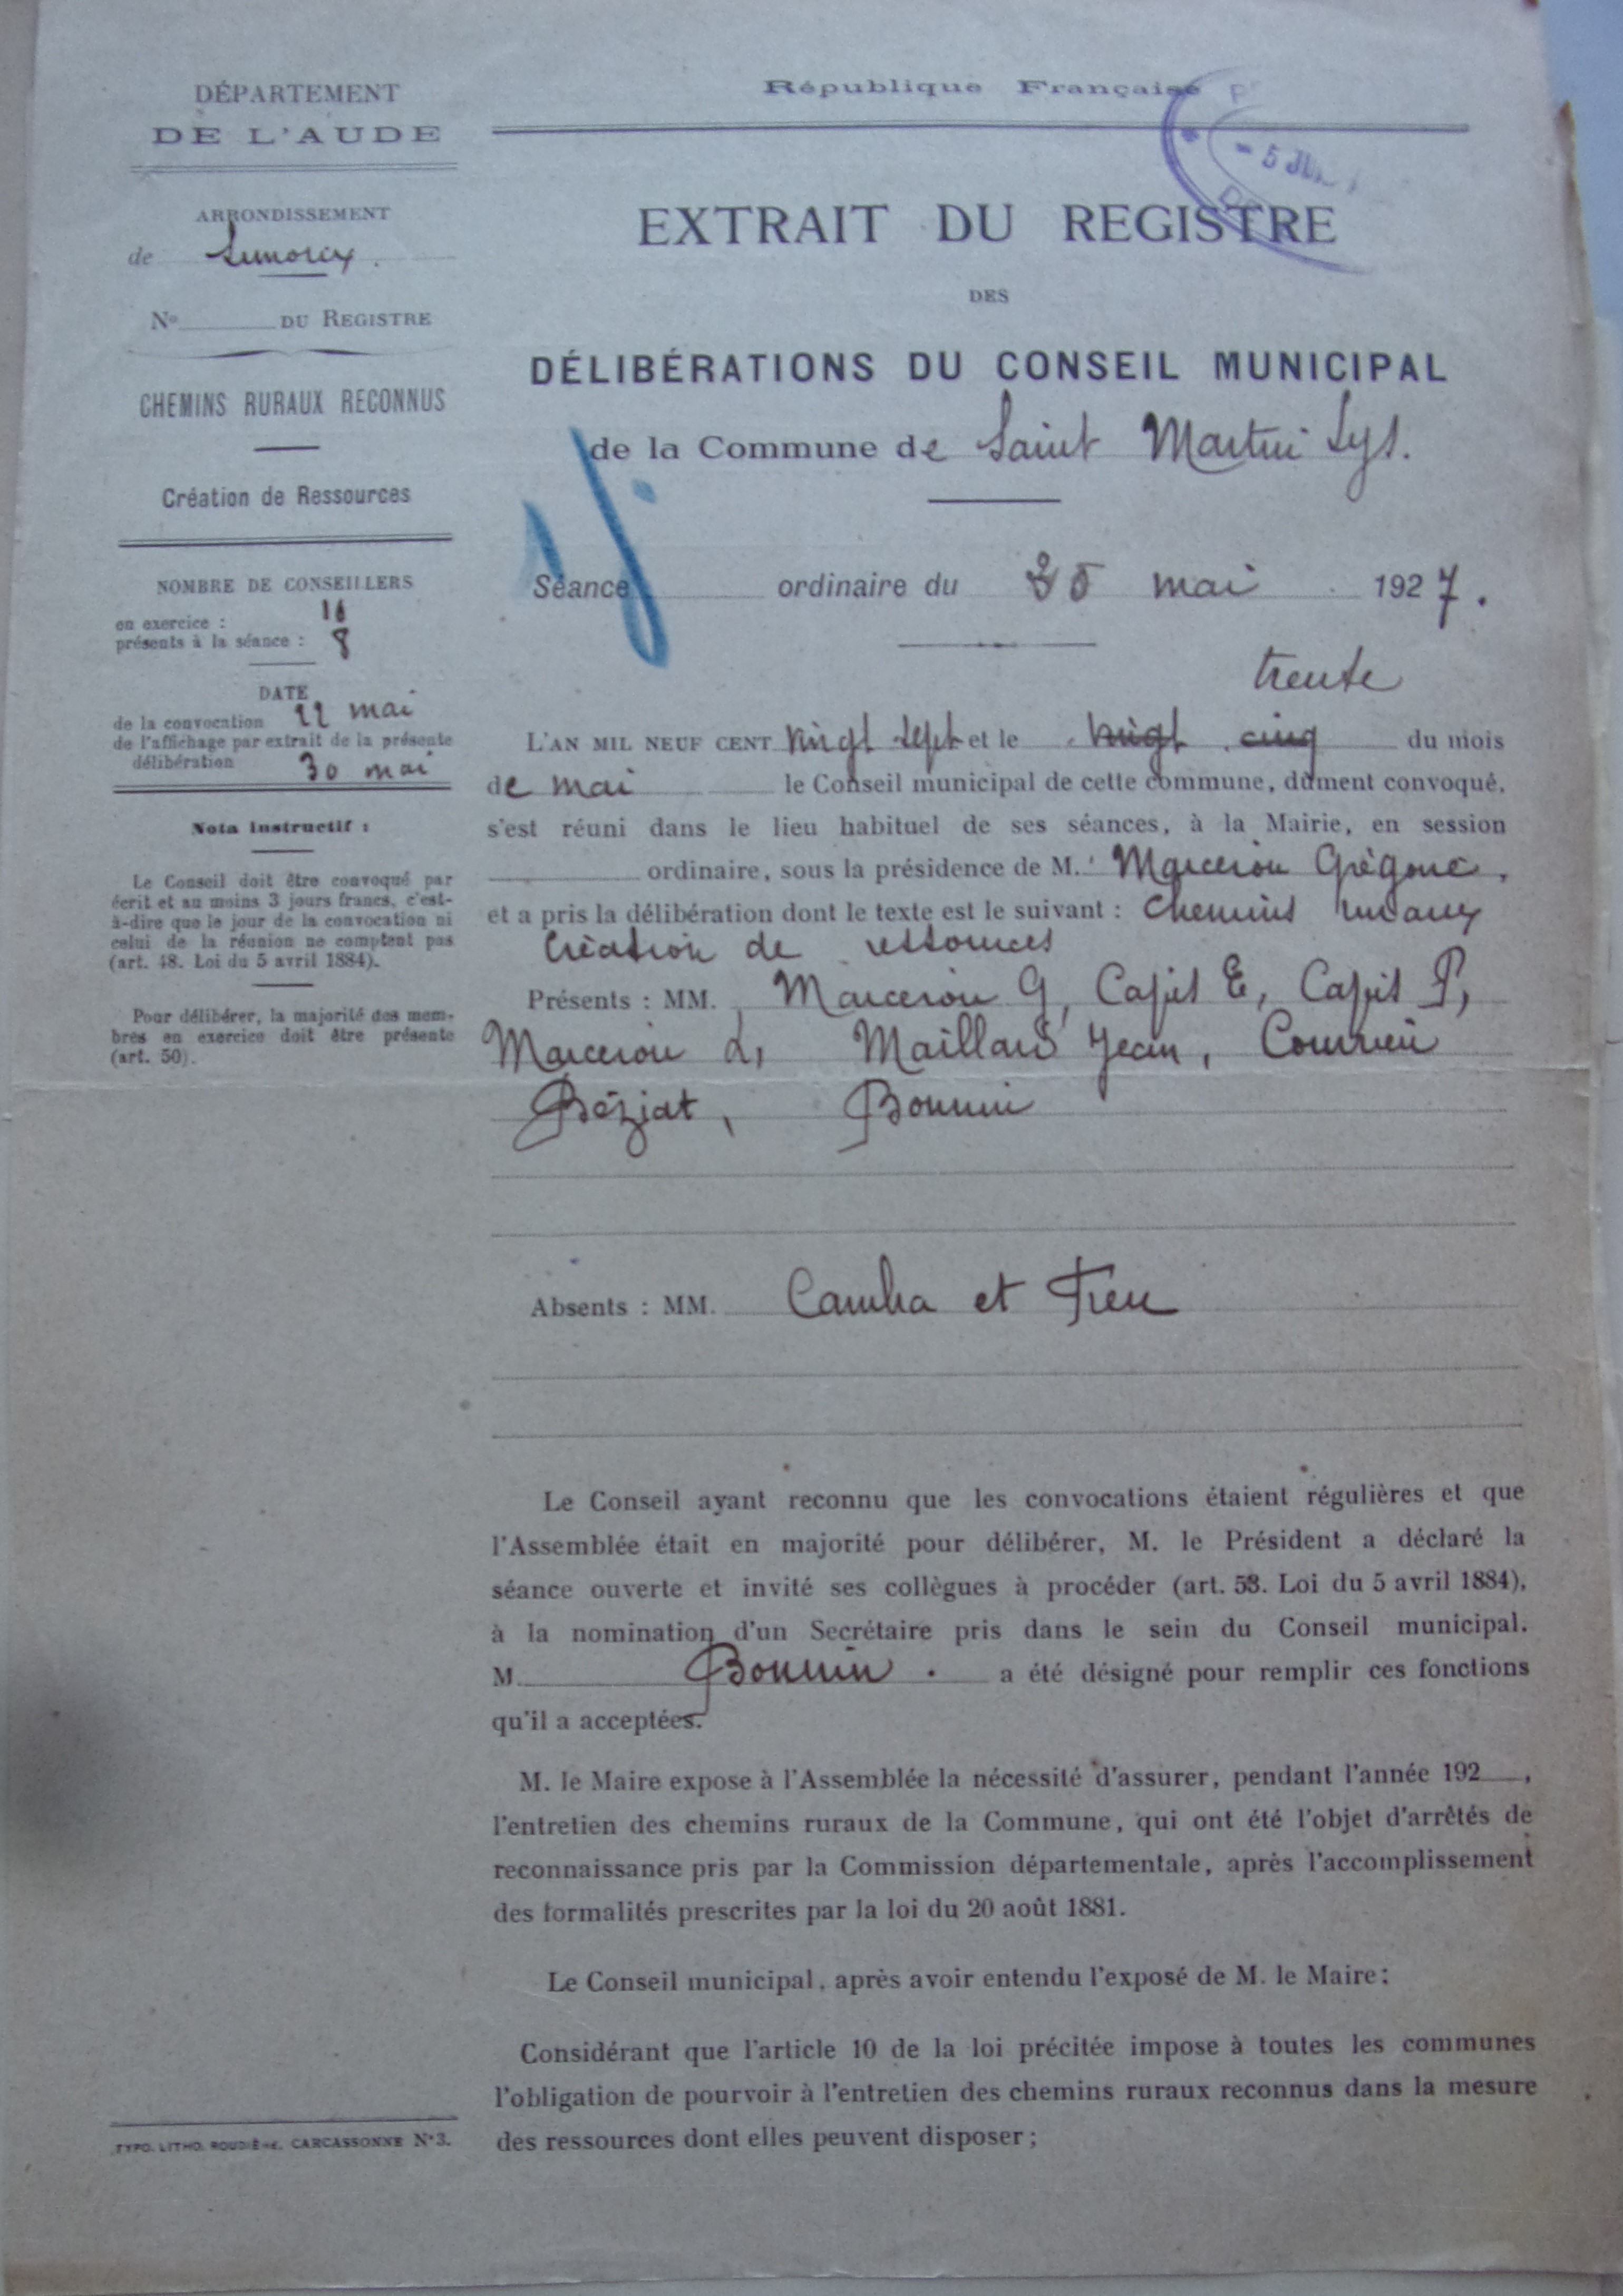 DÉPARTEMENT
DE L'AUDE
ARRONDISSEMENT
de Limoux.
No DU REGISTRE
CHEMINS RURAUX RECONNUS
Création de Ressources
NOMBRE DE CONSEILLERS
en exercice :
présents à la séance : 8
DATE
de la convocation 22 mai
de l'affichage par extrait de la présente
délibération 30 mai
Nota instructif :
Le Conseil doit être convoqué par
écrit et au moins 3 jours francs, c'est-
à-dire que le jour de la convocation ni
celui de la réunion ne comptent pas
(art. 48. Loi du 5 avril 1884).
Pour délibérer, la majorité des mem-
bres en exercice doit être présente
(art. 50).
TYPO. LITHO. ROUDIÈRE, CARCASSONNE N° 3.
République Française
- 5 JUI
EXTRAIT DU REGISTRE
DES
DÉLIBÉRATIONS DU CONSEIL MUNICIPAL
de la Commune de Saint Martin Lys.
Séance ordinaire du 30 mai 1927.
trente
L'AN MIL NEUF CENT vingt sept et le vingt cinq du mois
de mai le Conseil municipal de cette commune, dûment convoqué,
s'est réuni dans le lieu habituel de ses séances, à la Mairie, en session
ordinaire, sous la présidence de M. Marcerou Grégoire,
et a pris la délibération dont le texte est le suivant : Chemins ruraux
Création de ressources
Présents : MM. Marcerou G, Capit E, Capit P,
Marcerou L, Maillard Jean,
Béziat, Bonnin
Absents : MM. et
Le Conseil ayant reconnu que les convocations étaient régulières et que
l'Assemblée était en majorité pour délibérer, M. le Président a déclaré la
séance ouverte et invité ses collègues à procéder (art. 53. Loi du 5 avril 1884),
à la nomination d'un Secrétaire pris dans le sein du Conseil municipal.
M. Bonnin. a été désigné pour remplir ces fonctions
qu'il a acceptées.
M. le Maire expose à l'Assemblée la nécessité d'assurer, pendant l'année 192 ,
l'entretien des chemins ruraux de la Commune, qui ont été l'objet d'arrêtés de
reconnaissance pris par la Commission départementale, après l'accomplissement
des formalités prescrites par la loi du 20 août 1881.
Le Conseil municipal, après avoir entendu l'exposé de M. le Maire :
Considérant que l'article 10 de la loi précitée impose à toutes les communes
l'obligation de pourvoir à l'entretien des chemins ruraux reconnus dans la mesure
des ressources dont elles peuvent disposer ;